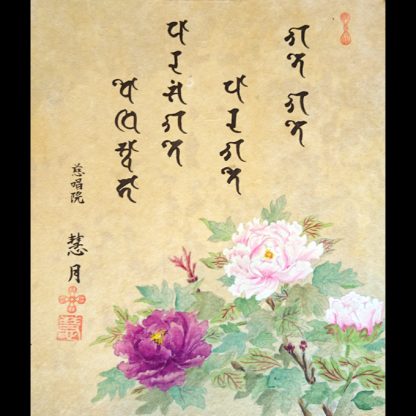 𑖐𑖝𑖸𑖐𑖝𑖸
𑖢𑖯𑖨𑖐𑖝𑖸
𑖢𑖯𑖨𑖭𑖽𑖐𑖝𑖸
𑖤𑖺𑖠𑖰𑖭𑖿𑖪𑖯𑖮𑖯
慈唱院
慧月